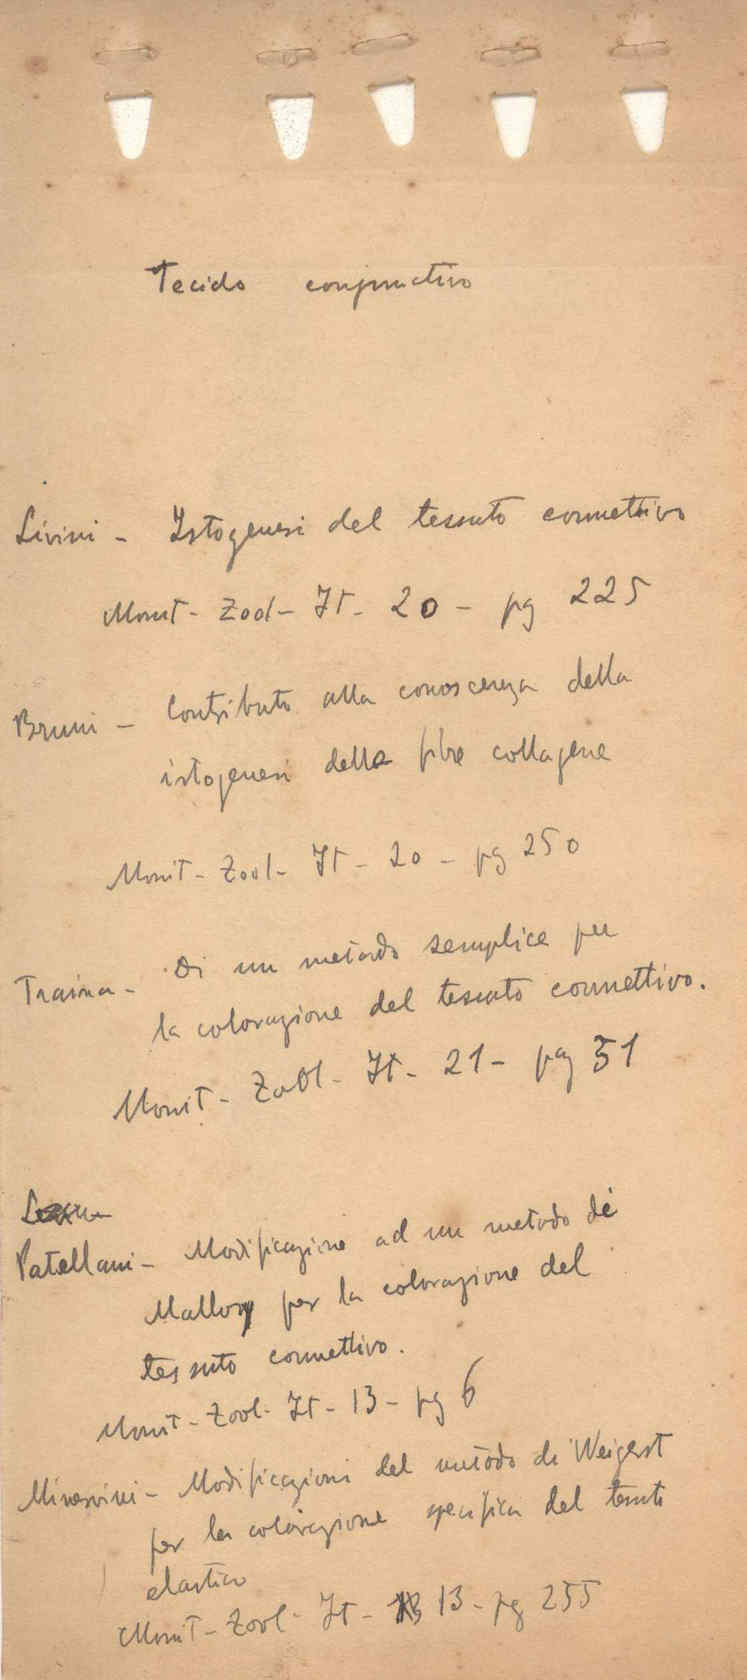 Tecido conjunctivo
Livini - Istogenesi del tessuto connettivo
Monit - Zool - It - 20 - pg 225
Bruni - Contributo alla conoscenza della
istogenesi delle fibre collagene
Monit - Zool - It - 20 - pg 250
Traina - Di un metodo semplice per
la colorazione del tessuto connettivo.
Monit - Zool - It - 21 - pag 51
Patellani - Modificazione ad un metodo di
Mallory per la colorazione del
tessuto connettivo.
Monit - Zool - It - 13 - pg 6
Minervini - Modificazioni del metodo di Weigert
per la colorazione specifica del tessuto
elastico
Monit - Zool - It - 13 - pg 255